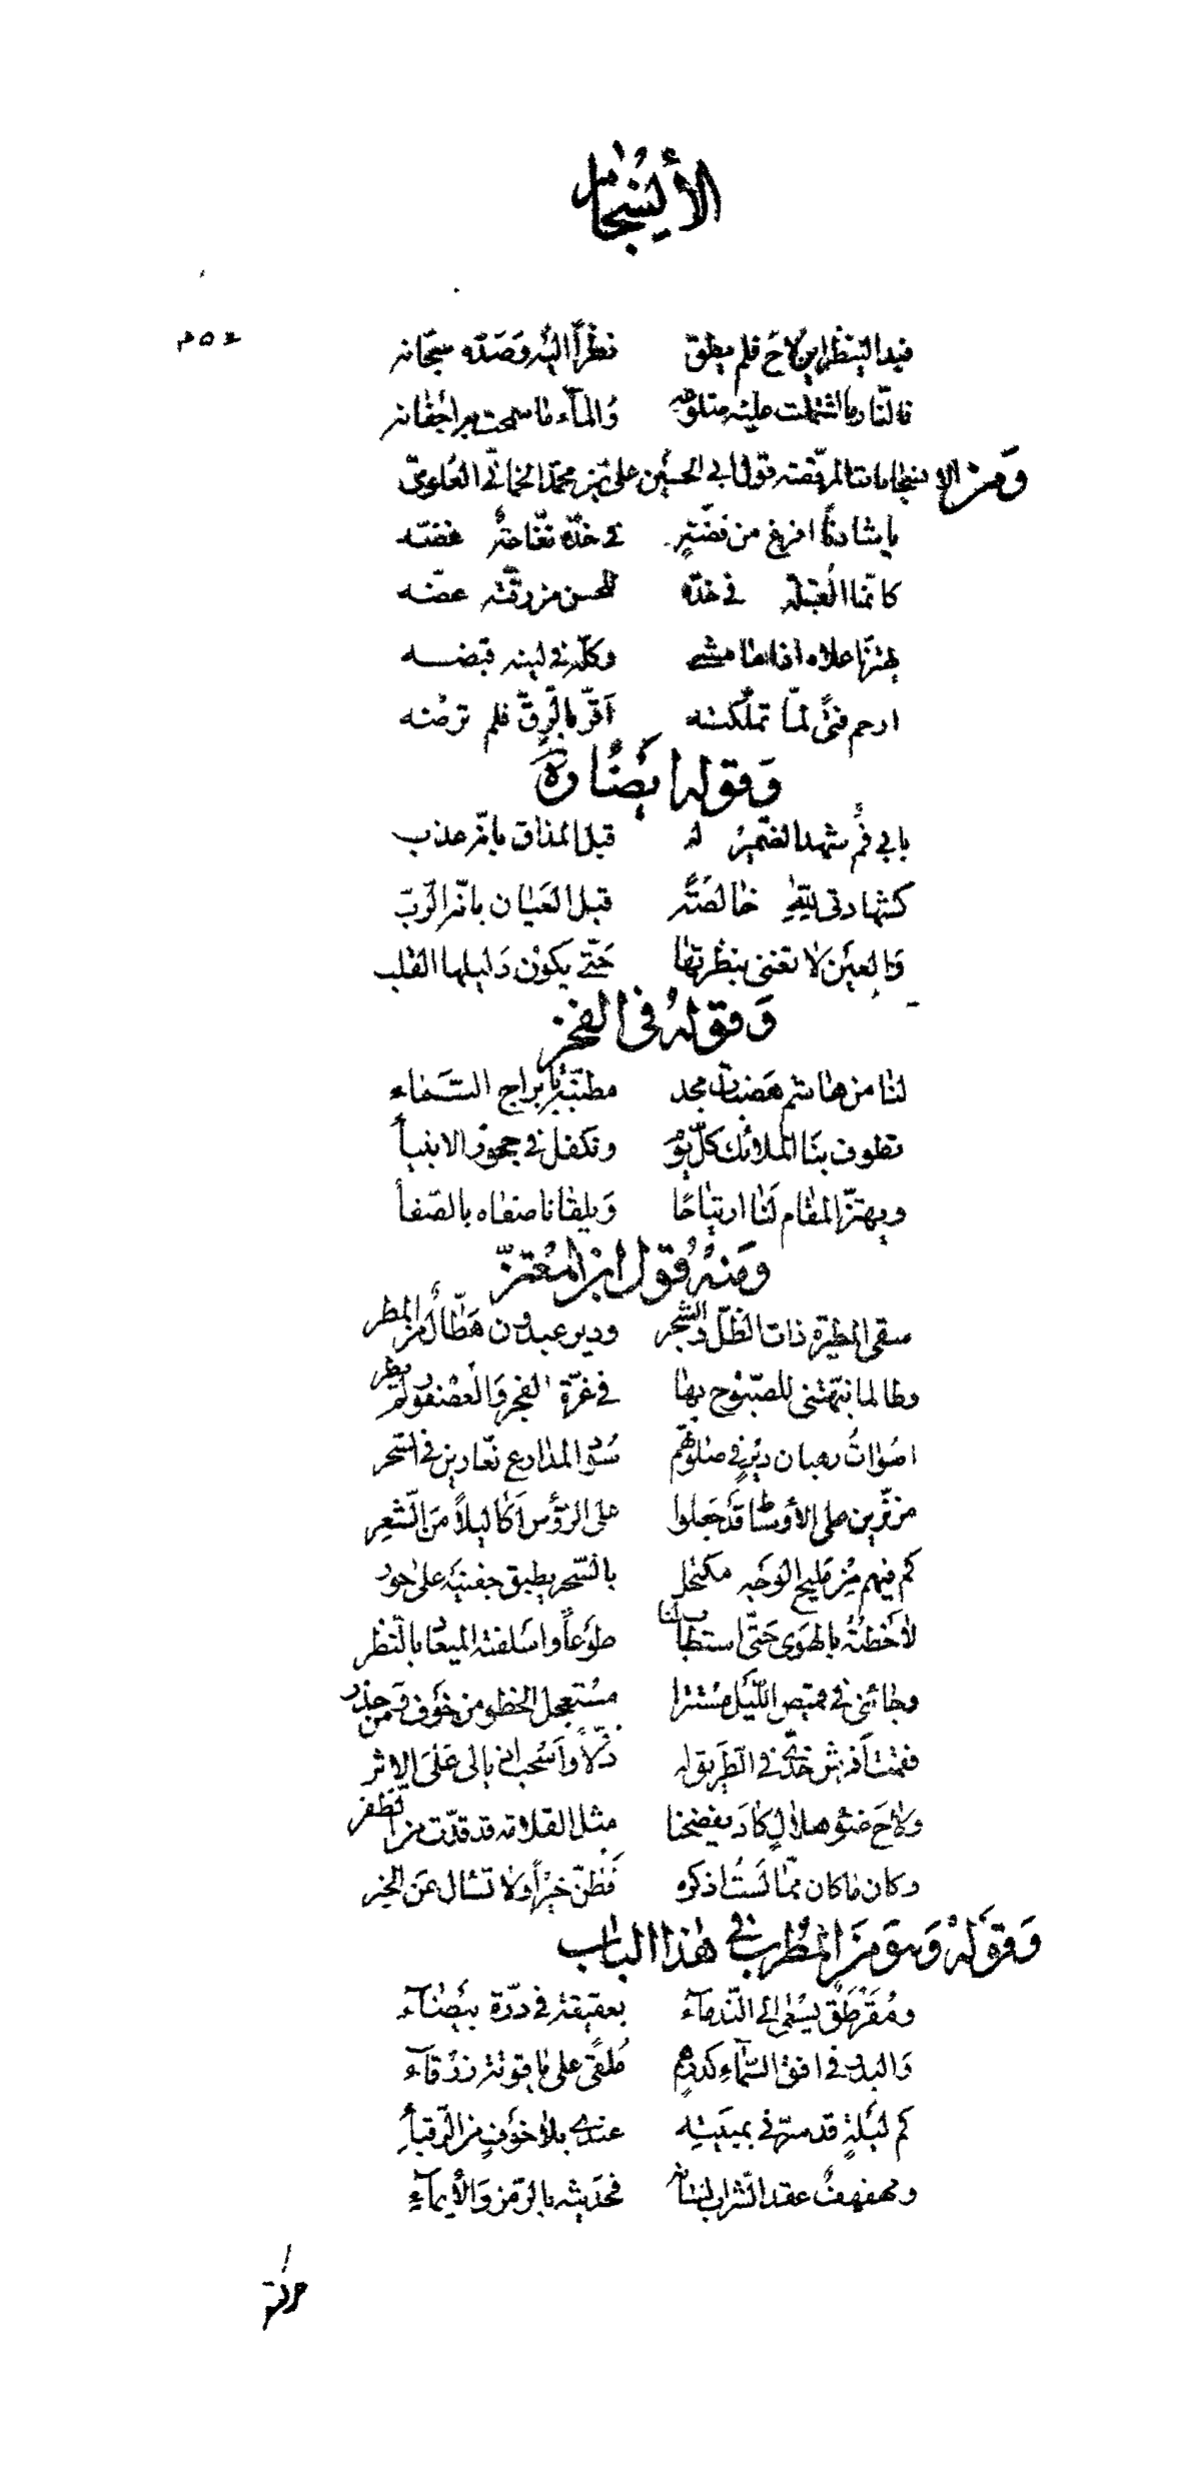 الأنسجام
فبدا لينظر اين لاح فلم يطق نظرًا اليه وصدّه سجّانه
فالنار ما اشتملت عليه ضلوعه والمآء ما سمحت به اجفانه
ومن الانسجامات المرقصة قول ابى الحسين على بن محمّد الحمانّى العلوىّ
يا شادنًا افرغ من فضّةٍ فى خدّه تفّاحةٌ غضّه
كانّما القبلة فى خدّه للحسن من رقّته عضّه
يهتزّ اعلاه اذا ما مشى وكلّه فى لينه قبضه
ارحم فتىً لمّا تملّكته اقرّ بالرّقّ فلم ترضه
وقوله ايضًا
بابى فمٌ شهد الضّمير له قبل المذاق بانّه عذب
كشهادتى لله خالصةً قبل العيان بانّه الرّبّ
والعين لا تغنى بنظرتها حتّى يكون دليلها القلب
وقوله فى الفخر
لنا من هاشم هضبات مجد مطنّبة بابراج السّماء
تطوف بنا الملائك كلّ يوم ونكفل فى حجور الانبيأ
ويهتزّ المقام لنا ارتياحًا ويلقانا صفاه بالصّفأ
ومنه قول ابن المعتزّ
سقى المطيرة ذات الظلّ والشجر ودير عبدون هطّالٌ من المطر
وطالما نبّهتنى للصّبوح بها فى غرّة الفجر والعصفور لم يطر
اصوات رهبان ديرٍ فى صلوتهم سود المدارع نعّارين فى السّحر
مزنّرين على الأوساط قد جعلوا على الرّؤس اكاليلاً من الشّعر
كم فيهم من مليح الوجه مكتحل بالسّحر يطبق جفنيه على حور
لاحظته بالهوى حتّى استطاب لنا طوعًا واسلفنى الميعاد بالنّظر
وجائنى فى قميص اللّيل مستترا مستعجل الخطو من خوف ومن حذر
فقمت افرش خدّى فى الطّريق له ذلاًّ واسحب اذيالى على الاثر
ولاح ضوء هلالٍ كاد يفضحنا مثل القلامة قد قدّت من الظّفر
وكان ما كان ممّا لست اذكره فظنّ خيرًا ولا تسأل عن الخبر
وقوله وهو من المطرب فى هذا الباب
ومقرطق يسعى الى النّدمآء بعقيقة فى درّة بيضآء
والبدر فى افق السّمآء كدرهم ملقىً على ياقوتة زرقآء
كم ليلةٍ قد سرّنى بمبيته عندى بلا خوفٍ من الرّقبأ
ومهفهف عقد الشّراب لسانه فحديثه بالرّمز والأيمآء